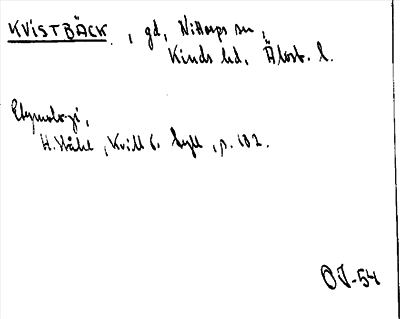 KVISTBÄCK, gd, Nittorps sn,
Kinds hd, Älvsb. l.
Etymologi,
H. Ståhl, Kvill o. hyll, p. 102.
OJ-54